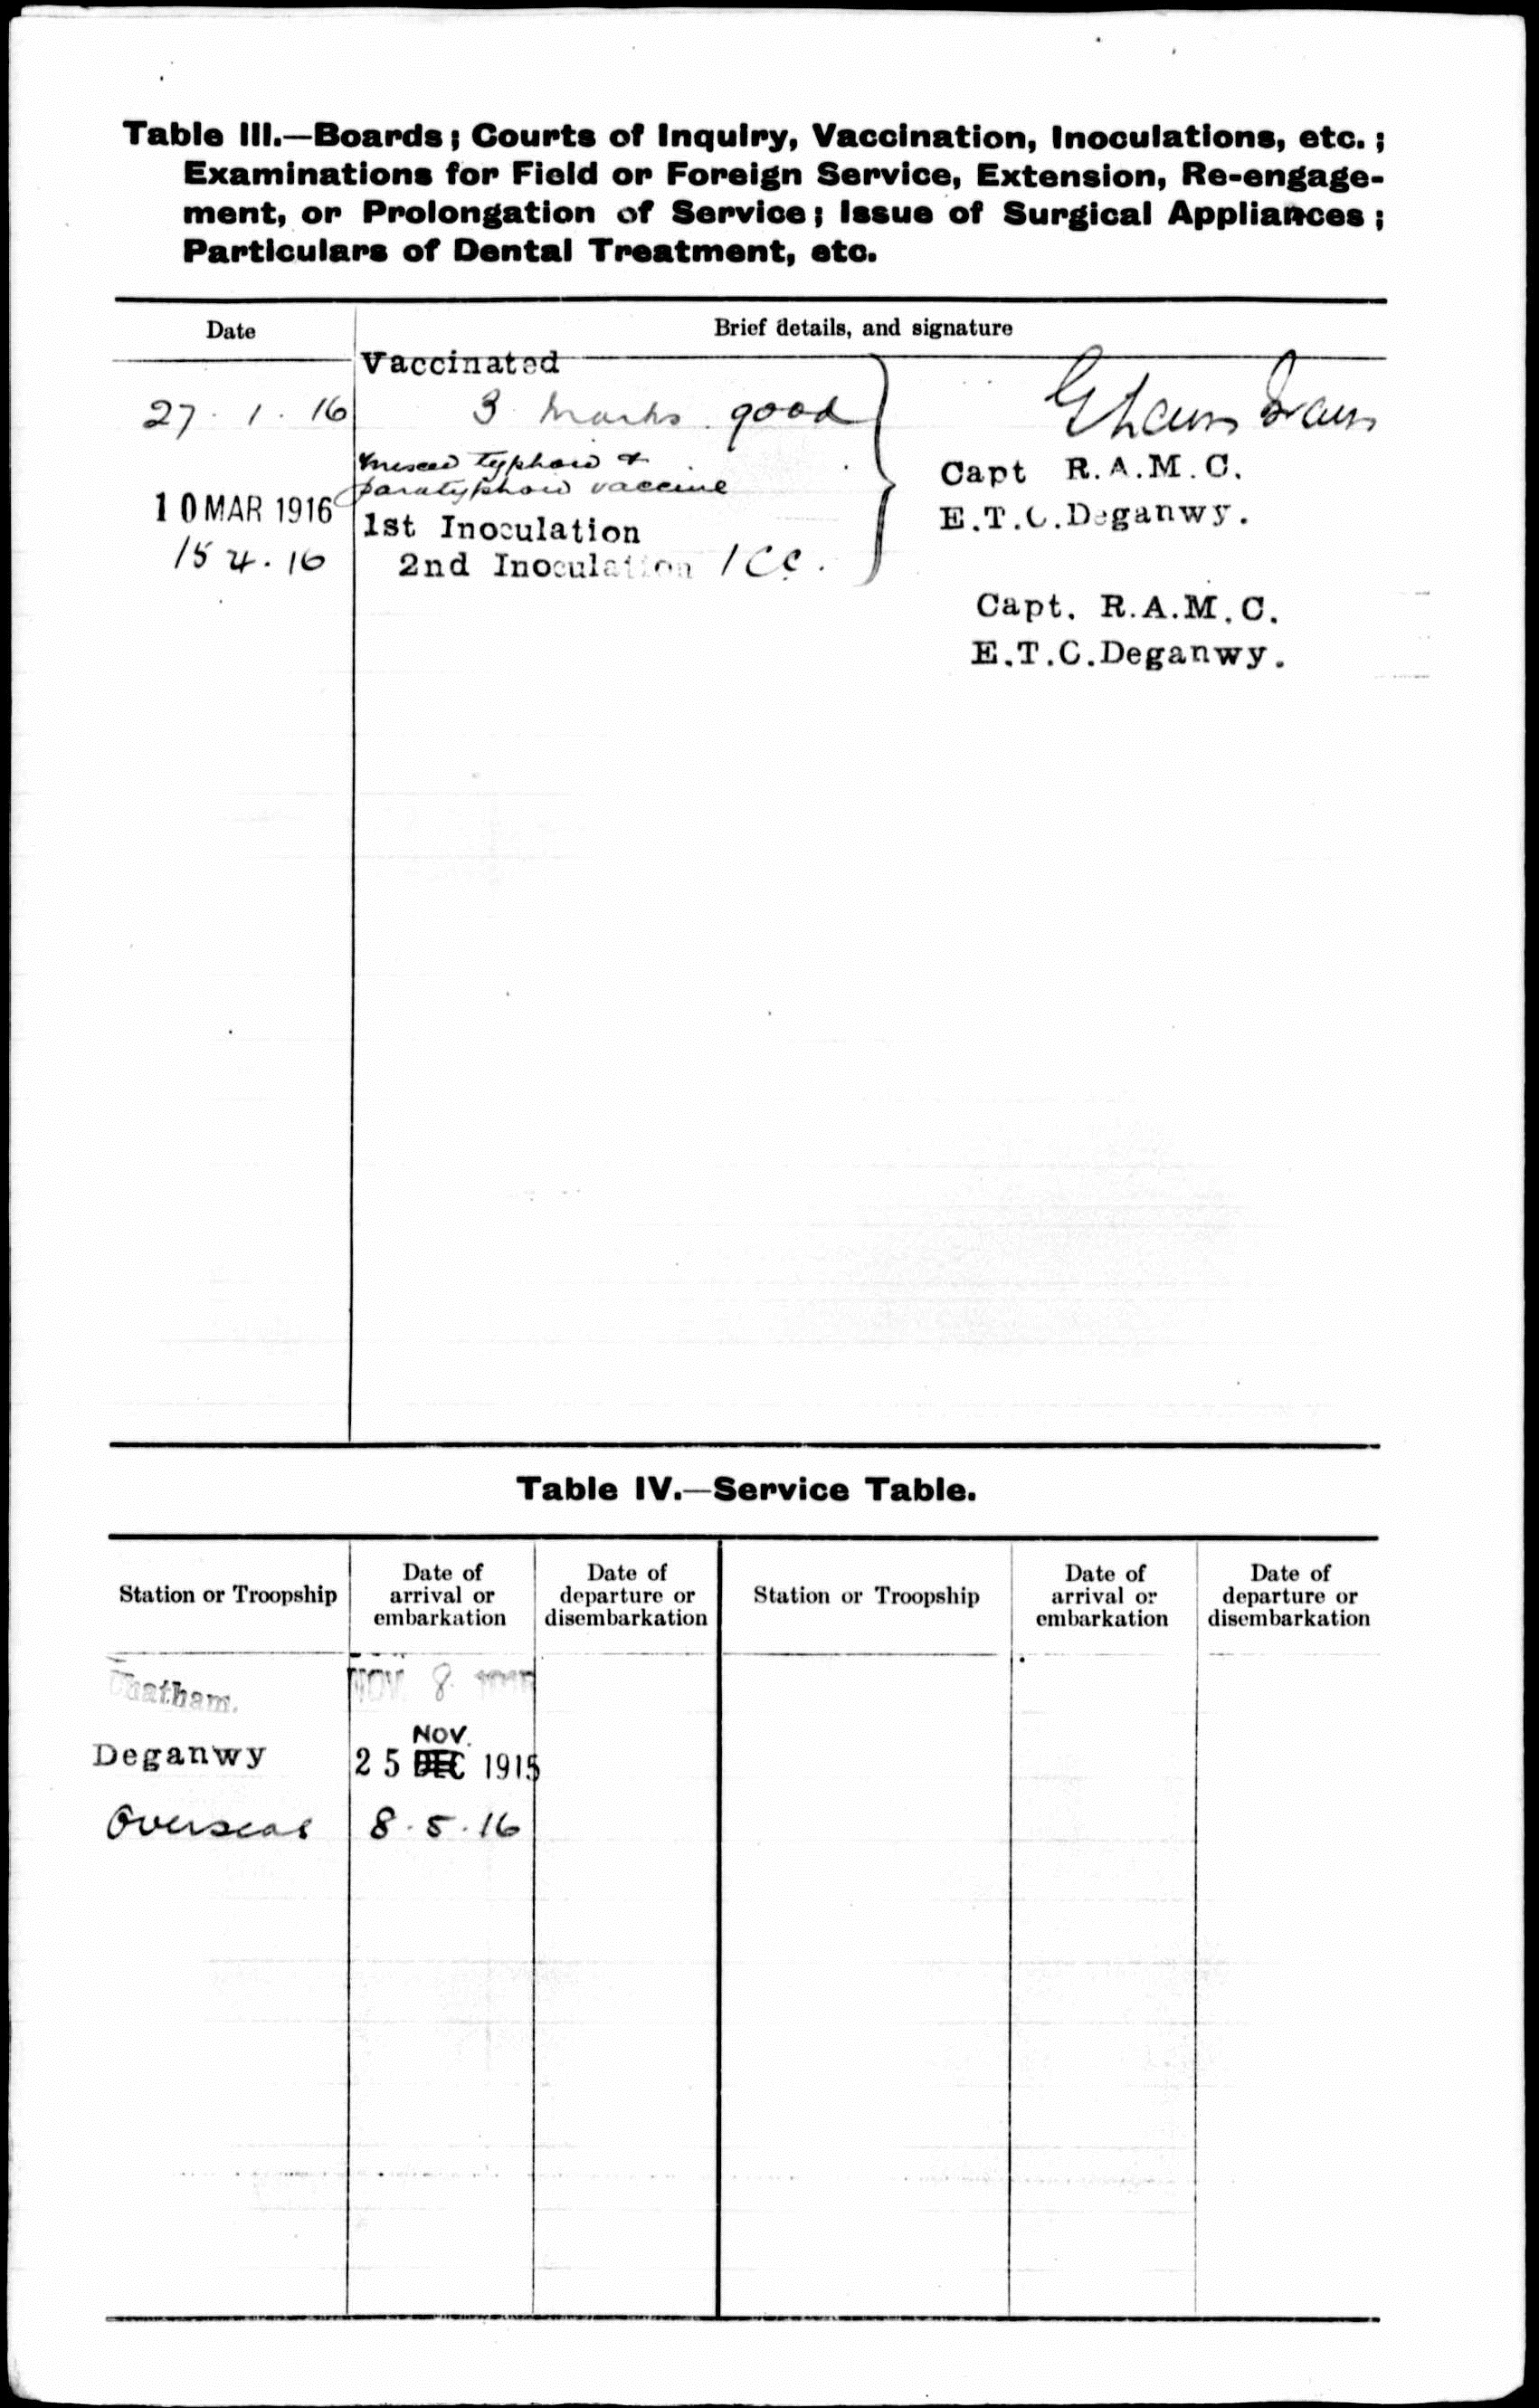 Table III.—Boards; Courts of Inquiry, Vaccination, Inoculations, etc.;
Examinations for Field or Foreign Service, Extension, Re-engage-
ment, or Prolongation of Service; Issue of Surgical Appliances;
Particulars of Dental Treatment, etc.
Date
Brief details, and signature
Vaccinated
27 . 1 . 16
3 marks . good
mixed typhoid &
paratyphoid vaccine
Capt R.A.M.C.
E.T.C.Deganwy.
10 MAR 1916
1st Inoculation
15 4 . 16
2nd Inoculation 1 CC .
Capt. R.A.M.C.
E.T.C.Deganwy.
Table IV.—Service Table.
Station or Troopship
Date of
arrival or
embarkation
Date of
departure or
disembarkation
Station or Troopship
Date of
arrival or
embarkation
Date of
departure or
disembarkation
Chatham. NOV 8
NOV.
Deganwy 25 DEC 1915
Overseas 8 . 5 . 16